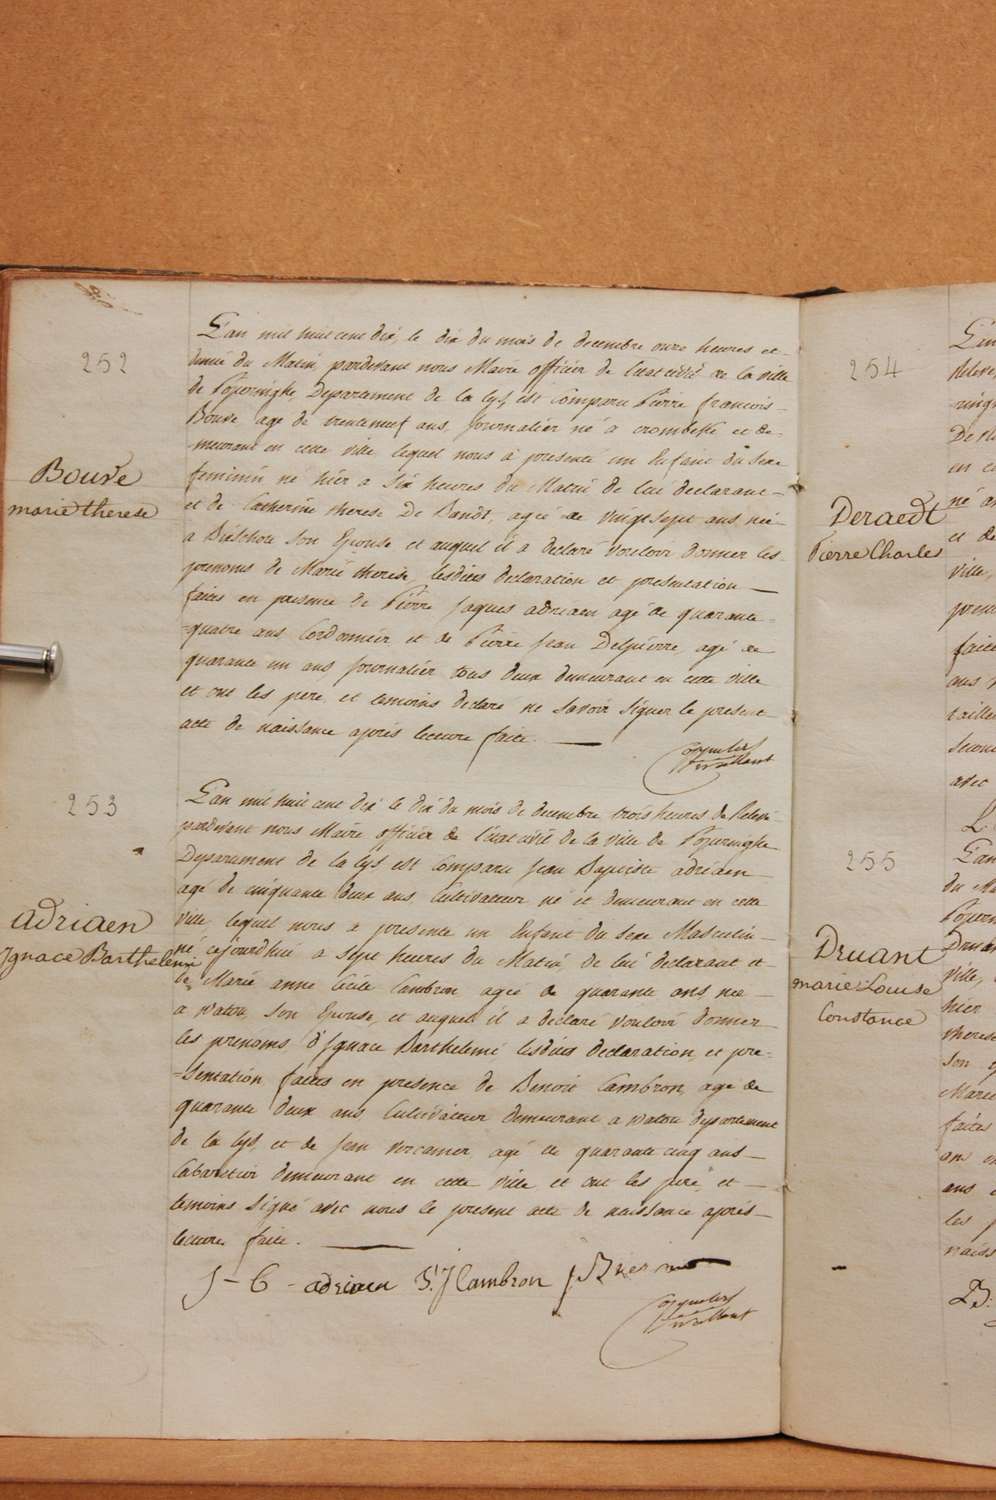 252
Bouve
marie therese
L'an mil huit cent dix, le dix du mois de decembre onze heures et
demie du Matin, pardevant nous Maire officier de l'etat civil de la ville
de Poperinghe Departement de la Lys, est Comparu Pierre francois
Bouve agé de trenteneuf ans, Journalier né a crombeke et de-
-meurant en cette ville, lequel nous a presenté un Enfant du Sexe
feminin né hier a Six heures du Matin de lui declarant
et de Catherine therese De Bandt, agée de vingt sept ans, née
a Bixschote Son Epouse et auquel il a declaré vouloir donner les
prenoms de Marie therese, lesdites declaration et presentation
faites en presence de Pierre Jaques adriaen agé de quarante
=quatre ans Cordonnier, et de Pierre Jean Delpierre, agé de
quarante un ans Journalier tous deux demeurant en cette ville
et ont les pere et temoins declaré ne Savoir Signer le present
acte de naissance après lecture faite.
253
adriaen
Ignace Barthelemi
L'an mil huit cent dix le dix du mois de decembre trois heures de Relevée
pardevant nous Maire officier de l'etat civil de la ville de Poperinghe
Departement de la Lys est Comparu Jean Baptiste adriaen
agé de cinquante deux ans Cultivateur né et demeurant en cette
ville, lequel nous a presenté un Enfant du Sexe Masculin
né cejourdhui a Sept heures du Matin de lui declarant et
de Marie anne Cecile Cambron agée de quarante ans née
a watou Son Epouse, et auquel il a declaré vouloir donner
les prenoms d'Ignace Barthelemi lesdites declaration et pre=
=sentation faites en presence de Benoit Cambron, agé de
quarante deux ans Cultivateur demeurant a watou departement
de la Lys, et de Jean vercamer agé de quarante cinq ans
Cabaretier demeurant en cette ville et ont les pere et
temoins Signé avec nous le present acte de naissance après
lecture faite.
J-B adriaen B. J Cambron
254
Deraedt
Pierre Charles
né a
et de
ville,
faite
ans
avec
255
Druant
marie Louise
Constance
L'an
du Ma
ville,
hier
therese
Son
Marie
faites
ans
les